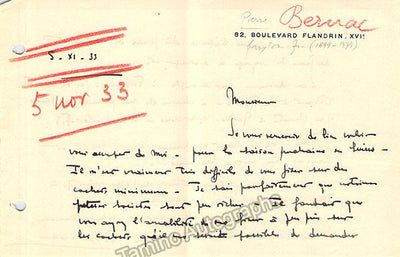 Pierre Bernac
82, BOULEVARD FLANDRIN. XVIᵉ
(1899-1979)
5-XI-33
5 nov 33
Monsieur
Je vous remercie de bien vouloir
vous occuper de moi - pour la saison prochaine en Suisse -
Il m'est vraiment très difficile de vous fixer sur des
cachets minimums - Je sais parfaitement que certaines
petites sociétés sont peu riches - Il faudrait que
vous ayez l'amabilité de me fixer à peu près sur
les cachets qu'il est possible de demander
Tamino Autographs